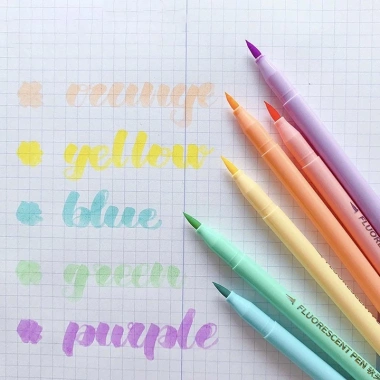 orange
yellow
blue
green
purple
FLUORESCENT PEN